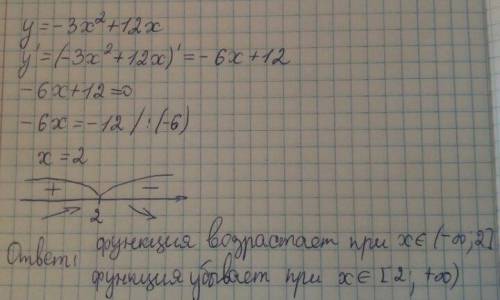 y = -3x² + 12x
y' = (-3x² + 12x)' = -6x + 12
-6x + 12 = 0
-6x = -12 / : (-6)
x = 2
+ -
2
Ответ: функция возрастает при x ∈ (-∞; 2]
функция убывает при x ∈ [2; +∞)